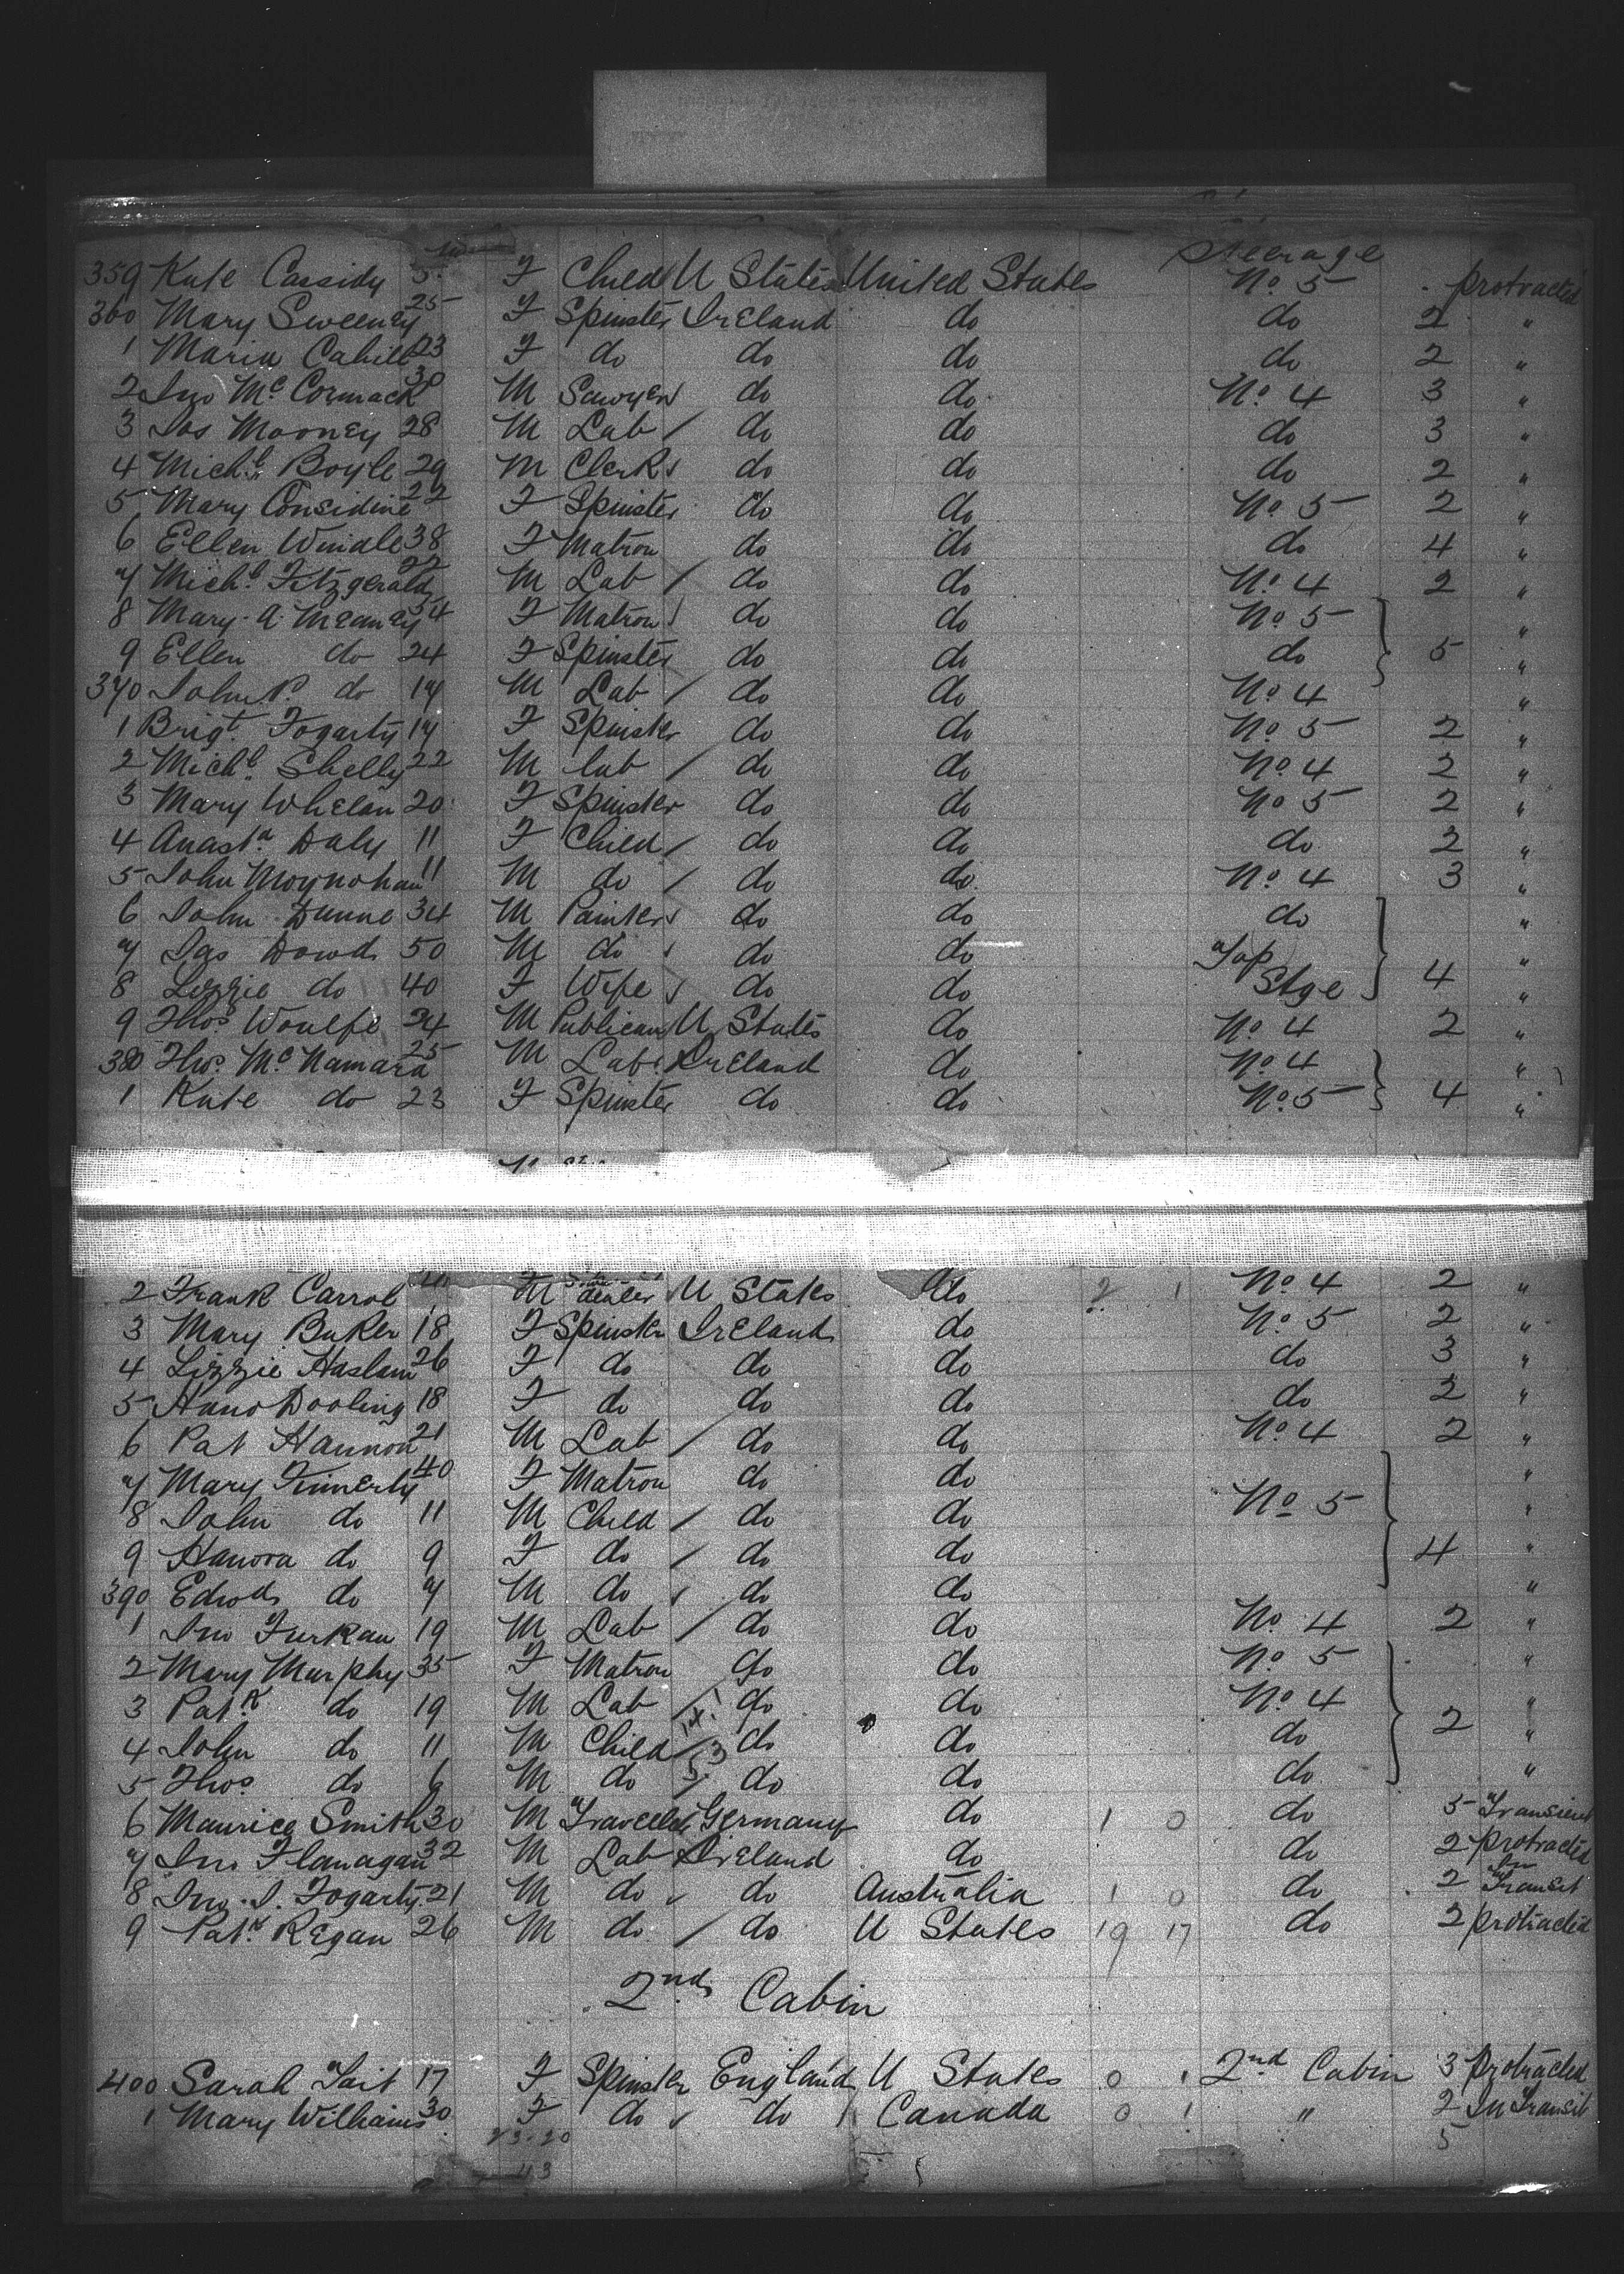 Steerage
359 Kate Cassidy 5 F Child U States United States No. 5 protracted
360 Mary Sweeney 25 F Spinster Ireland do do 2 "
1 Maria Cahill 23 F do do do do 2 "
2 Jno McCormack 30 M Sawyer do do No. 4 3 "
3 Jas Mooney 28 M Lab / do do do 3 "
4 Michl. Boyle 29 M Clerk do do do 2 "
5 Mary Considine 22 F Spinster do do No. 5 2 "
6 Ellen Windle 38 F Matron do do do 4 "
7 Michl. Fitzgerald 22 M Lab / do do No. 4 2 "
8 Mary A. Meaney 54 F Matron do do No. 5 "
9 Ellen do 24 F Spinster do do do 5 "
370 John P. do 17 M Lab / do do No. 4 "
1 Brigt. Fogarty 17 F Spinster do do No. 5 2 "
2 Michl. Shelly 22 M lab / do do No. 4 2 "
3 Mary Whelan 20 F Spinster do do No. 5 2 "
4 Anasta. Daly 11 F Child / do do do 2 "
5 John Moynohan 11 M do / do do No. 4 3 "
6 John Dunne 34 M Painter do do do "
7 Jas Dowd 50 M do do do Top "
8 Lizzie do 40 F Wife do do Stge 4 "
9 Thos. Woulfe 24 M Publican U States do No. 4 2 "
380 Thos. McNamara 25 M Lab Ireland do No. 4 "
1 Kate do 23 F Spinster do do No. 5 4 "
2 Frank Carrol M dealer U States do 2 1 No. 4 2 "
3 Mary Baker 18 F Spinster Ireland do No. 5 2 "
4 Lizzie Haslam 26 F do do do do 3 "
5 Hano Dooling 18 F do do do do 2 "
6 Pat Hannon 21 M Lab / do do No. 4 2 "
7 Mary Finnerty 40 F Matron do do "
8 John do 11 M Child / do do No. 5 "
9 Hanora do 9 F do / do do 4 "
390 Edwd do 7 M do do do "
1 Jno Furkan 19 M Lab / do do No. 4 2 "
2 Mary Murphy 35 F Matron do do No. 5 "
3 Patk. do 19 M Lab / do do No. 4 "
4 John do 11 M Child / do do do 2 "
5 Thos. do 6 M do / do do do "
6 Maurice Smith 30 M Traveller Germany do 1 0 do 5 Transient
7 Jno. Flanagan 32 M Lab Ireland do do 2 protracted
8 Jno. J. Fogarty 21 M do do Australia 1 0 do 2 In Transit
9 Patk. Regan 26 M do / do U States 19 17 do 2 protracted
2nd Cabin
400 Sarah Tait 17 F Spinster England U States 0 1 2nd Cabin 3 Protracted
1 Mary Williams 30 F do do Canada 0 1 " 2 In Transit
23-20 5
43